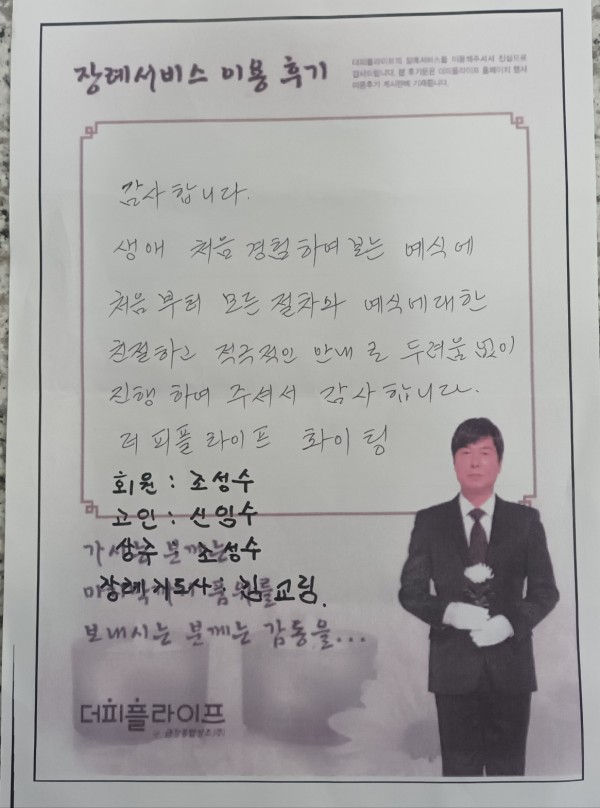 장례서비스 이용 후기
더피플라이프의 장례서비스를 이용해주셔서 진심으로
감사드립니다. 본 후기문은 더피플라이프 홈페이지 행사
이용후기 게시판에 기재됩니다.
감사합니다.
생애 처음 경험하여보는 예식에
처음부터 모든 절차와 예식에대한
친절하고 적극적인 안내로 두려움없이
진행하여 주셔서 감사합니다.
더피플라이프 화이팅
회원 : 조성수
고인 : 신임수
상주 조성수
장례지도사 임교림.
보내시는 분께는 감동을...
더피플라이프